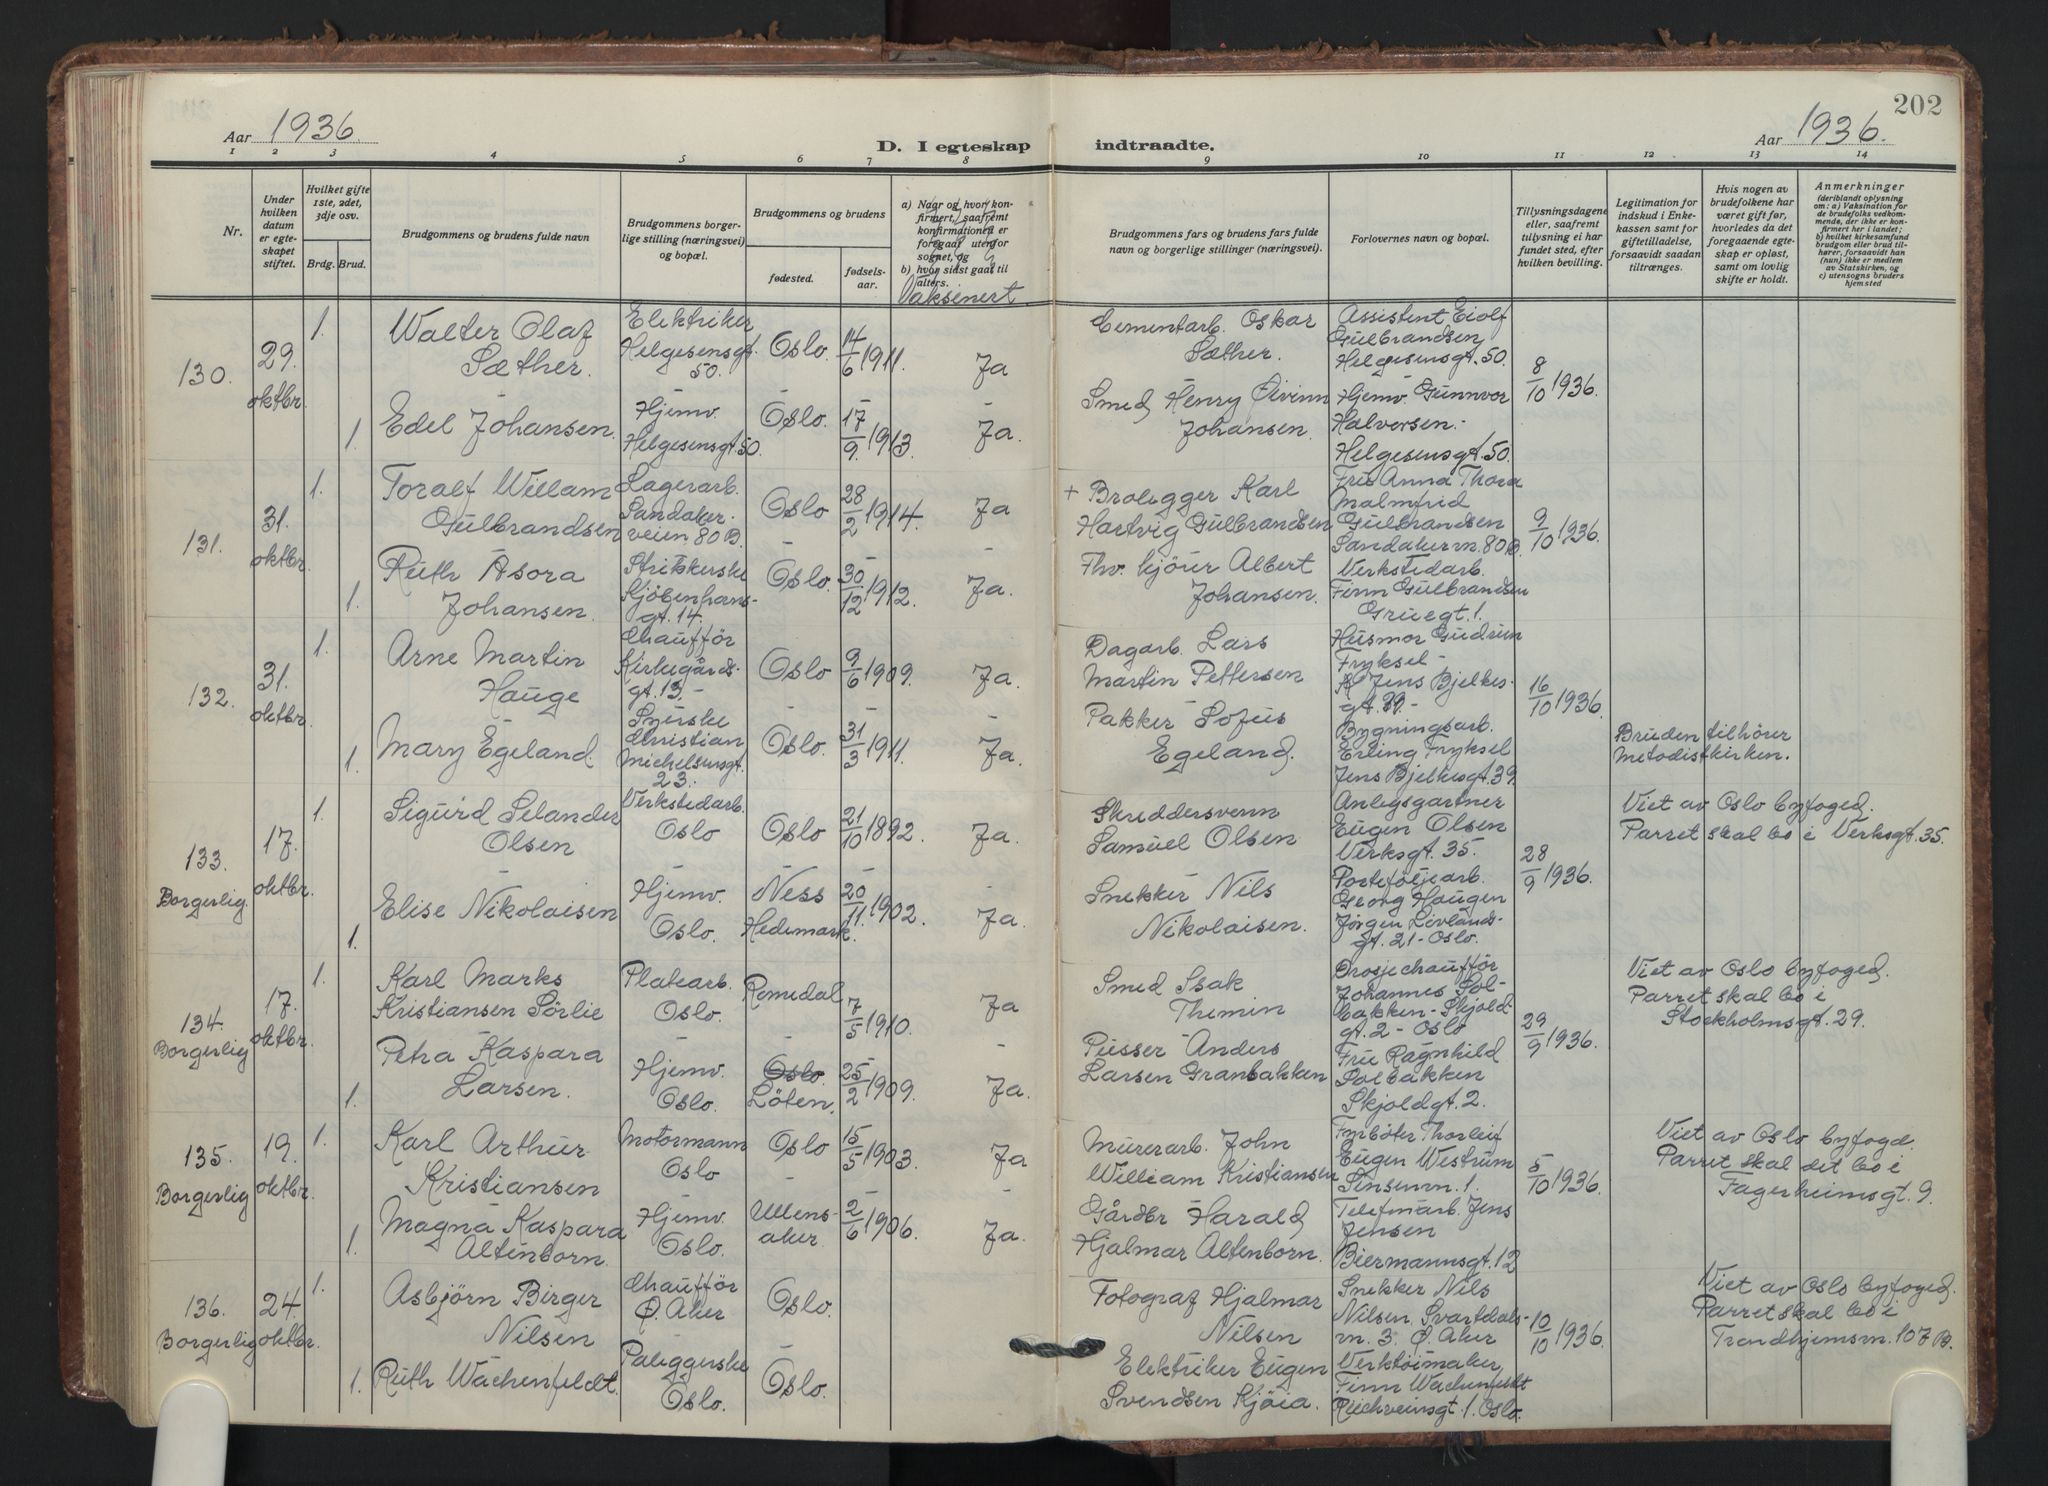 202
Aar 1936.
D. I egteskap indtraadte.
Aar 1936.
1 2 3 4 5 6 7 8 9 10 11 12 13 14
Nr.
Under hvilken datum er egteskapet stiftet.
Hvilket gifte 1ste, 2det, 3dje osv.
Brdg. Brud.
Brudgommens og brudens fulde navn
Brudgommens borgerlige stilling (næringsvei) og bopæl.
Brudgommens og brudens
fødested.
fødselsaar.
a) Naar og hvor konfirmert, saafremt konfirmationen er foregaat utenfor sognet, og
b) hvor sidst gaat til alters.
Vaksinert
Brudgommens fars og brudens fars fulde navn og borgerlige stillinger (næringsvei).
Forlovernes navn og bopæl.
Tillysningsdagene eller, saafremt tillysning ei har fundet sted, efter hvilken bevilling.
Legitimation for indskud i Enkekassen samt for giftetilladelse, forsaavidt saadan tiltrænges.
Hvis nogen av brudefolkene har været gift før, hvorledes da det foregaaende egteskap er opløst, samt om lovlig skifte er holdt.
Anmerkninger
(deriblandt oplysning om: a) Vaksination for de brudefolks vedkommende, der ikke er konfirmert her i landet; b) hvilket kirkesamfund brudgom eller brud tilhører, forsaavidt han (hun) ikke er medlem av Statskirken, og c) utensogns bruders hjemsted
130.
29. oktbr.
1.
Walter Olaf
Sæther.
Elektriker
Helgesensgt.
50.
Oslo.
14/6 1911.
Ja
Cementarb. Oskar
Sæther.
Assistent Eiolf
Gulbrandsen
Helgesensgt. 50.
8/10 1936.
1.
Edel Johansen.
Hjemv.
Helgesensgt. 50.
Oslo.
17/9 1913.
Ja.
Smed Henry Øivinn
Johansen.
Hjemv. Gunnvor
Halvorsen.
Helgesensgt. 50.
131.
31. oktbr.
1.
Toralf Willam
Gulbrandsen
Lagerarb.
Sandaker-
veien 80 B.
Oslo
28/2 1914.
Ja
+ Brolegger Karl
Hartvig Gulbrandsen
Fru Anna Thora
Malmfrid
Gulbrandsen
Sandakerm. 80 B.
9/10 1936.
1.
Ruth Asora
Johansen.
Kjøbenhavns-
gt. 14.
Oslo.
30/12 1912.
Ja.
Thv. kjører Albert
Johansen.
Verkstedarb.
Finn Gulbrandsen
Gruegt. 1.
132.
31. oktbr.
1.
Arne Martin
Hauge
Chauffør
Kirkegårds-
gt. 13.
Oslo
9/6 1909.
Ja.
Dagarb. Lars
Martin Pettersen
Husmor Gudrun
Fryksel
Jens Bjelkes-
gt. 39.
16/10 1936.
1.
Mary Egeland.
Syerske
Christian
Michelsensgt.
23.
Oslo.
31/3 1911.
Ja.
Pakker Sofus
Egeland.
Bygningsarb.
Erling Fryksel
Jens Bjelkesgt. 39.
Bruden tilhører
Metodistkirken.
133.
Borgerlig.
17. oktbr.
1.
Sigurd Selander
Olsen
Verkstedarb.
Oslo
Oslo
21/10 1892.
Ja.
Skreddersvenn
Samuel Olsen
Anlegsgartner
Eugen Olsen
Verksgt. 35.
28/9 1936.
Viet av Oslo byfoged.
Parret skal bo i Verksgt. 35.
1.
Elise Nikolaisen
Hjemv.
Oslo.
Ness
Hedemark.
20/11. 1902.
Ja.
Snekker Nils
Nikolaisen.
Porteføljearb.
Georg Haugen
Jørgen Løvlands-
gt. 21 - Oslo.
134.
Borgerlig
17. oktbr.
1.
Karl Marks
Kristiansen Sørlie
Platearb.
Oslo.
Romedal
7/5 1910.
Ja
Smed Isak
Themin
Drosjechauffør
Johannes Sol-
bakken - Skjold-
gt. 2 - Oslo
29/9 1936.
Viet av Oslo byfoged.
Parret skal bo i
Stockholmsgt. 29.
1.
Petra Kaspara
Larsen.
Hjemv.
Oslo.
Oslo.
Løten.
25/2 1909.
Ja.
Pusser Anders
Larsen Granbakken
Fru Ragnhild
Solbakken
Skjoldgt. 2.
135.
Borgerlig
19. oktbr.
1.
Karl Arthur
Kristiansen
Motormann
Oslo
Oslo
15/5 1903.
Ja
Murerarb. John
William Kristiansen
Fyrbøter Thorleif
Eugen Westrum
Sinsenm. 1.
5/10 1936.
Viet av Oslo byfogd.
Parret skal det bo i
Fagerheimsgt. 9.
1.
Magna Kaspara
Altenborn.
Hjemv.
Oslo.
Ullens-
aker.
2/6 1906.
Ja.
Gårdbr Harald
Hjalmar Altenborn.
Telefonarb. Jens
Jensen
Biermannsgt. 12
136.
Borgerlig
24 oktbr.
1.
Asbjørn Birger
Nilsen
Chauffør
Ø. Aker
Oslo.
Fotograf Hjalmar
Nilsen
Snekker Nils
Nilsen Svartdals-
m. 3. Ø. Aker
10/10 1936.
Viet av Oslo byfoged.
Parret skal bo i
Trondhjemsm. 107 B.
1.
Ruth Wachenfeldt.
Paleggerske
Oslo.
Oslo.
Elektriker Eugen
Svendsen Kjøia.
Verktøimaker
Finn Wachenfeldt
Oslo.